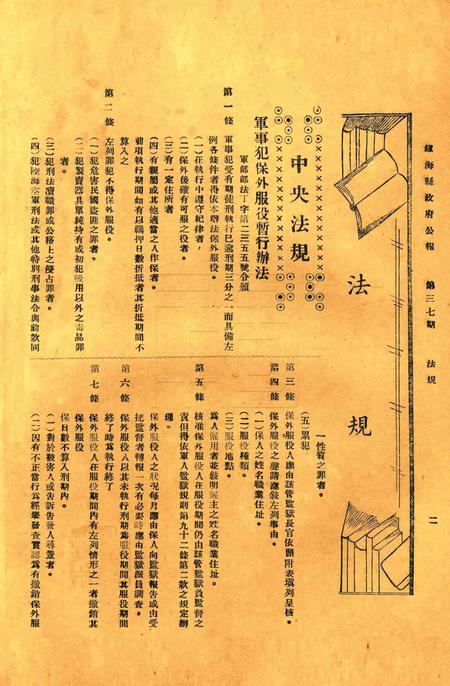 鎮海縣政府公報　第三七期　法規　二
法規
中央法規
軍事犯保外服役暫行辦法
軍部部法丁字第二三五五號令頒
第一條　軍事犯受有期徒刑執行已逾刑期三分之一而具備左
例各條件者得依本辦法保外服役。
(一)在執行中遵守紀律者，
(二)保外後確有可服之役者。
(三)有一定住所者
(四)有親屬或其他適當之人作保者。
前項執行期間如有以羈押日數折抵者其折抵期間不
算入之
第二條　左列罪犯不得保外服役。
(一)犯危害民國盜匪之罪者。
(二)犯製賣器具單純持有或初犯吸用以外之毒品罪
者。
(三)犯刑法瀆職罪或公務上之侵占罪者。
(四)犯陸海空軍刑法或其他特別刑事法令與前款同
一性質之罪者。
(五)累犯
第三條　保外服役人應由該管監獄長官依照附表塡列呈核。
第四條　保外服役之聲請應敍左列事由。
(一)保人之姓名職業住址。
(二)服役種類。
(三)服役地點。
爲人雇用者並敍明雇主之姓名職業住址。
第五條　核准保外服役人在服役期間仍由該管監獄負監督之
責但得依軍人監獄規則第九十二條第二款之規定辦
理。
保外服役人之狀況每月應由保人向監獄報告或由受
託監督者轉報一次有必要時應由監獄派員調查。
第六條　保外服役人以其未執行刑期爲服役期間其服役期間
終了時爲執行終了
第七條　保外服役人在服役期間內有左列情形之一者撤銷其
保外服役
保日數不算入刑期內。
(一)對於被害人或告訴告發人尋釁者。
(二)因有不正當行爲經舉發查實認爲有撤銷保外服